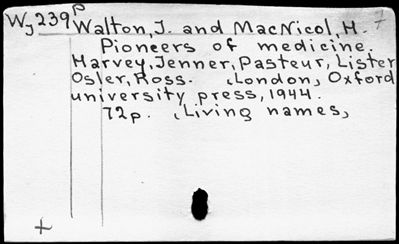 WJ239P Walton, J. and MacNicol, H. 7
Pioneers of medicine.
Harvey, Jenner, Pasteur, Lister
Osler, Ross. (London, Oxford
university press, 1944.
72p. (Living names,
+